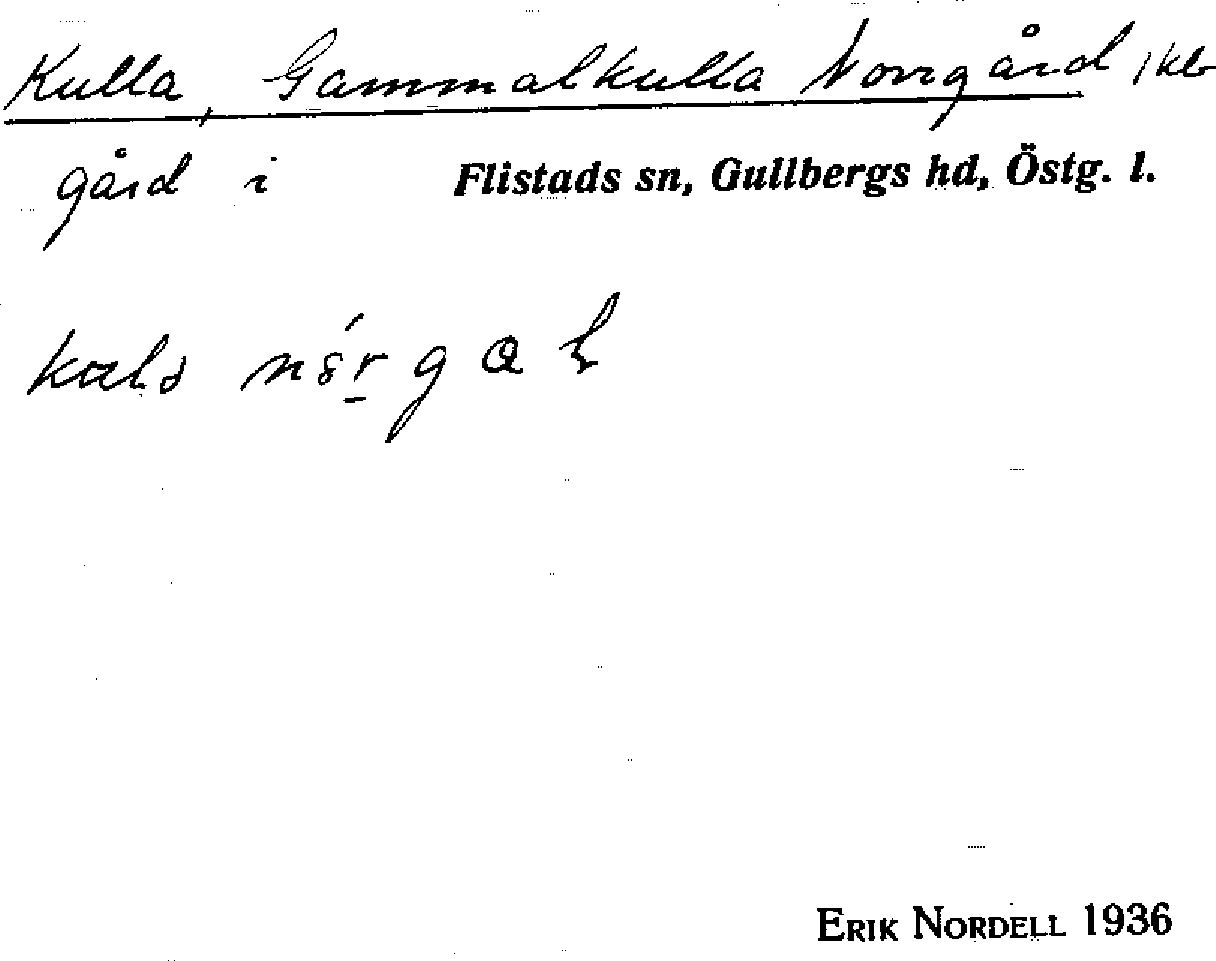 Kulla, Gammalkulla Norrgård, kb
gård i Flistads sn, Gullbergs hd, Östg. l.
kals
ERIK NORDELL 1936